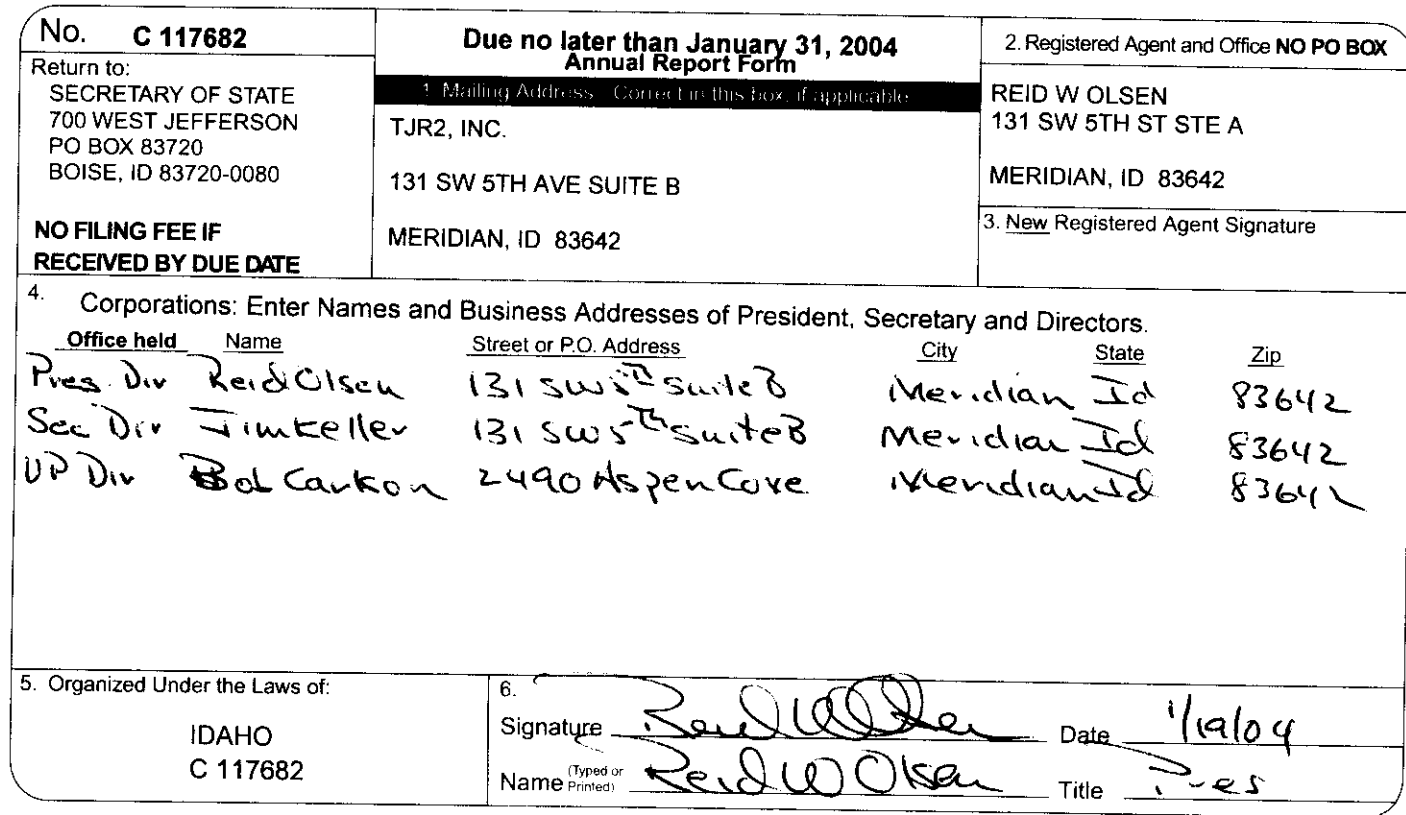 No. C 117682
Return to:
SECRETARY OF STATE
700 WEST JEFFERSON
PO BOX 83720
BOISE, ID 83720-0080
NO FILING FEE IF
RECEIVED BY DUE DATE
Due no later than January 31, 2004
Annual Report Form
1. Mailing Address - Correct in this box, if applicable
TJR2, INC.
131 SW 5TH AVE SUITE B
MERIDIAN, ID 83642
2. Registered Agent and Office NO PO BOX
REID W OLSEN
131 SW 5TH ST STE A
MERIDIAN, ID 83642
3. New Registered Agent Signature
4. Corporations: Enter Names and Business Addresses of President, Secretary and Directors.
Office held Name Street or P.O. Address City State Zip
Pres. Dir Reid Olsen 131 SW 5th Suite B Meridian Id 83642
Sec Dir Jim Keller 131 SW 5th Suite B Meridian Id 83642
VP Dir Bob 2490 Aspen Cove Meridian Id 83642
5. Organized Under the Laws of:
IDAHO
C 117682
6.
Signature Reid W Olsen Date 1/19/04
Name (Typed or Printed) Reid W Olsen Title Pres